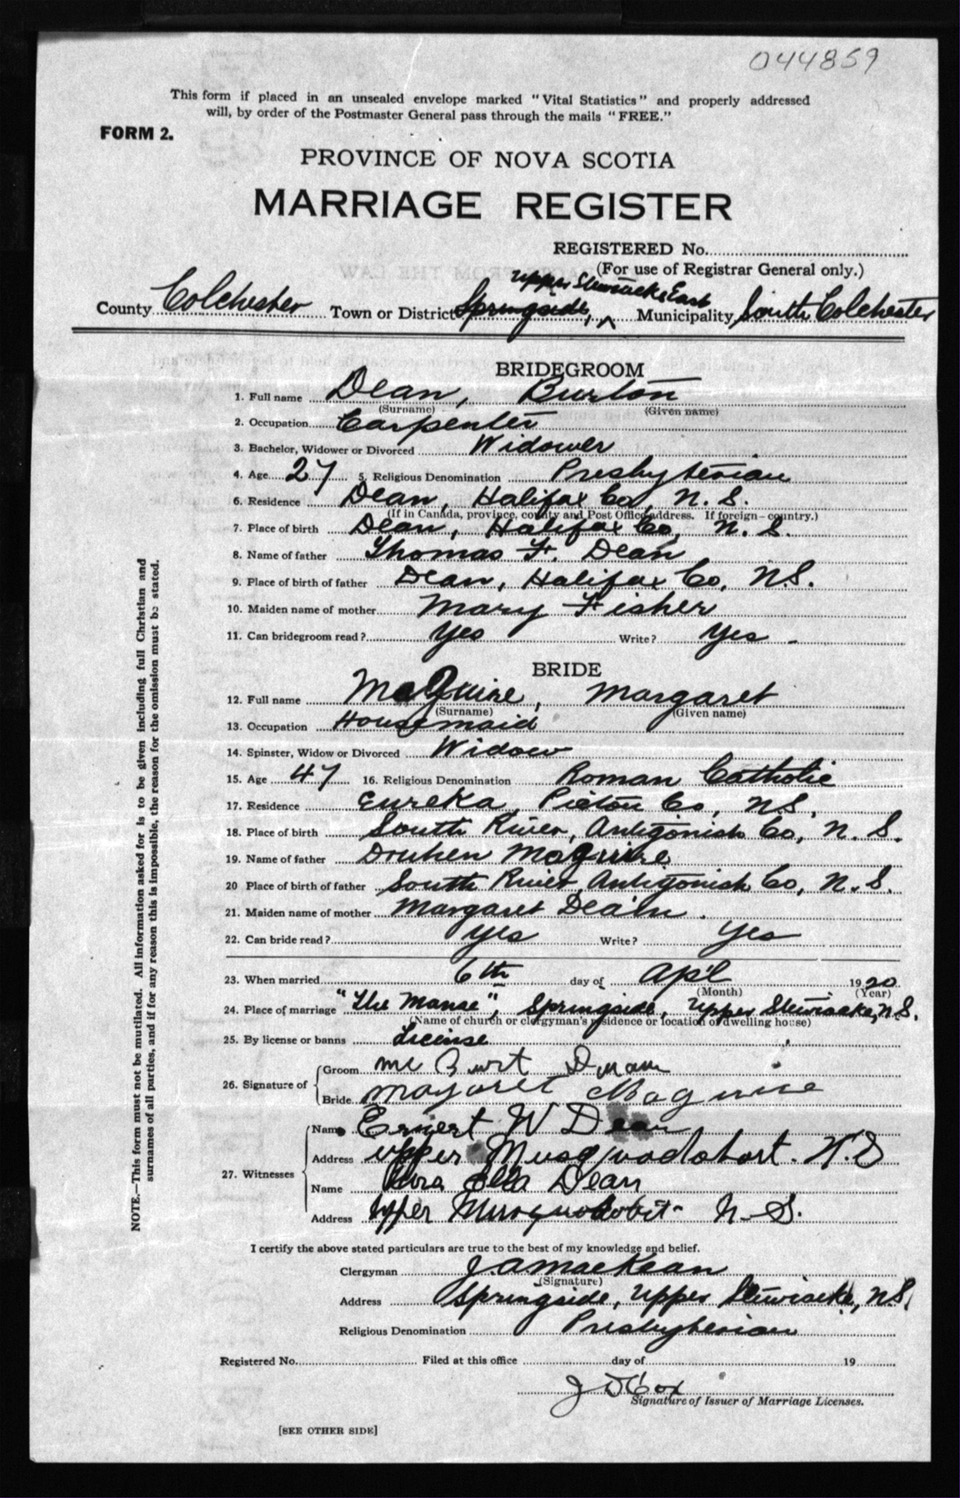 044859
This form if placed in an unsealed envelope marked "Vital Statistics" and properly addressed
will, by order of the Postmaster General pass through the mails "FREE."
FORM 2.
PROVINCE OF NOVA SCOTIA
MARRIAGE REGISTER
REGISTERED No.
(For use of Registrar General only.)
Upper Stewiacke East
County Colchester Town or District Springside, Municipality South Colchester
BRIDEGROOM
1. Full name Dean, Burton
(Surname) (Given name)
2. Occupation Carpenter
3. Bachelor, Widower or Divorced Widower
4. Age 27 5. Religious Denomination Presbyterian
6. Residence Dean, Halifax Co, N. S.
(If in Canada, province, county and Post Office address. If foreign—country.)
7. Place of birth Dean, Halifax Co, N. S.
8. Name of father Thomas F. Dean
9. Place of birth of father Dean, Halifax Co, N.S.
10. Maiden name of mother Mary Fisher
11. Can bridegroom read? Yes Write? Yes
BRIDE
12. Full name McGuire, Margaret
(Surname) (Given name)
13. Occupation Housemaid
14. Spinster, Widow or Divorced Widow
15. Age 47 16. Religious Denomination Roman Catholic
17. Residence Eureka, Pictou Co, N.S.
18. Place of birth South River, Antigonish Co, N. S.
19. Name of father McGuire
20 Place of birth of father South River, Antigonish Co, N. S.
21. Maiden name of mother Margaret
22. Can bride read? Yes Write? Yes
23. When married 6th day of Apl 1920
(Month) (Year)
24. Place of marriage "The Manse", Springside, Upper Stewiacke, N.S.
(Name of church or clergyman's residence or location of dwelling house)
25. By license or banns License
26. Signature of Groom Burt
Bride Margaret Maguire
27. Witnesses Name Ernest W Dean
Address Upper Musquodobort. N.S
Name Ella Dean
Address Upper Musquodobit N-S.
I certify the above stated particulars are true to the best of my knowledge and belief.
Clergyman J. A. MacKean
(Signature)
Address Springside, Upper Stewiacke, N.S.
Religious Denomination Presbyterian
Registered No. Filed at this office day of 19
J D Cox
Signature of Issuer of Marriage Licenses.
[SEE OTHER SIDE]
NOTE.—This form must not be mutilated. All information asked for is to be given including full Christian and
surnames of all parties, and if for any reason this is impossible, the reason for the omission must be stated.